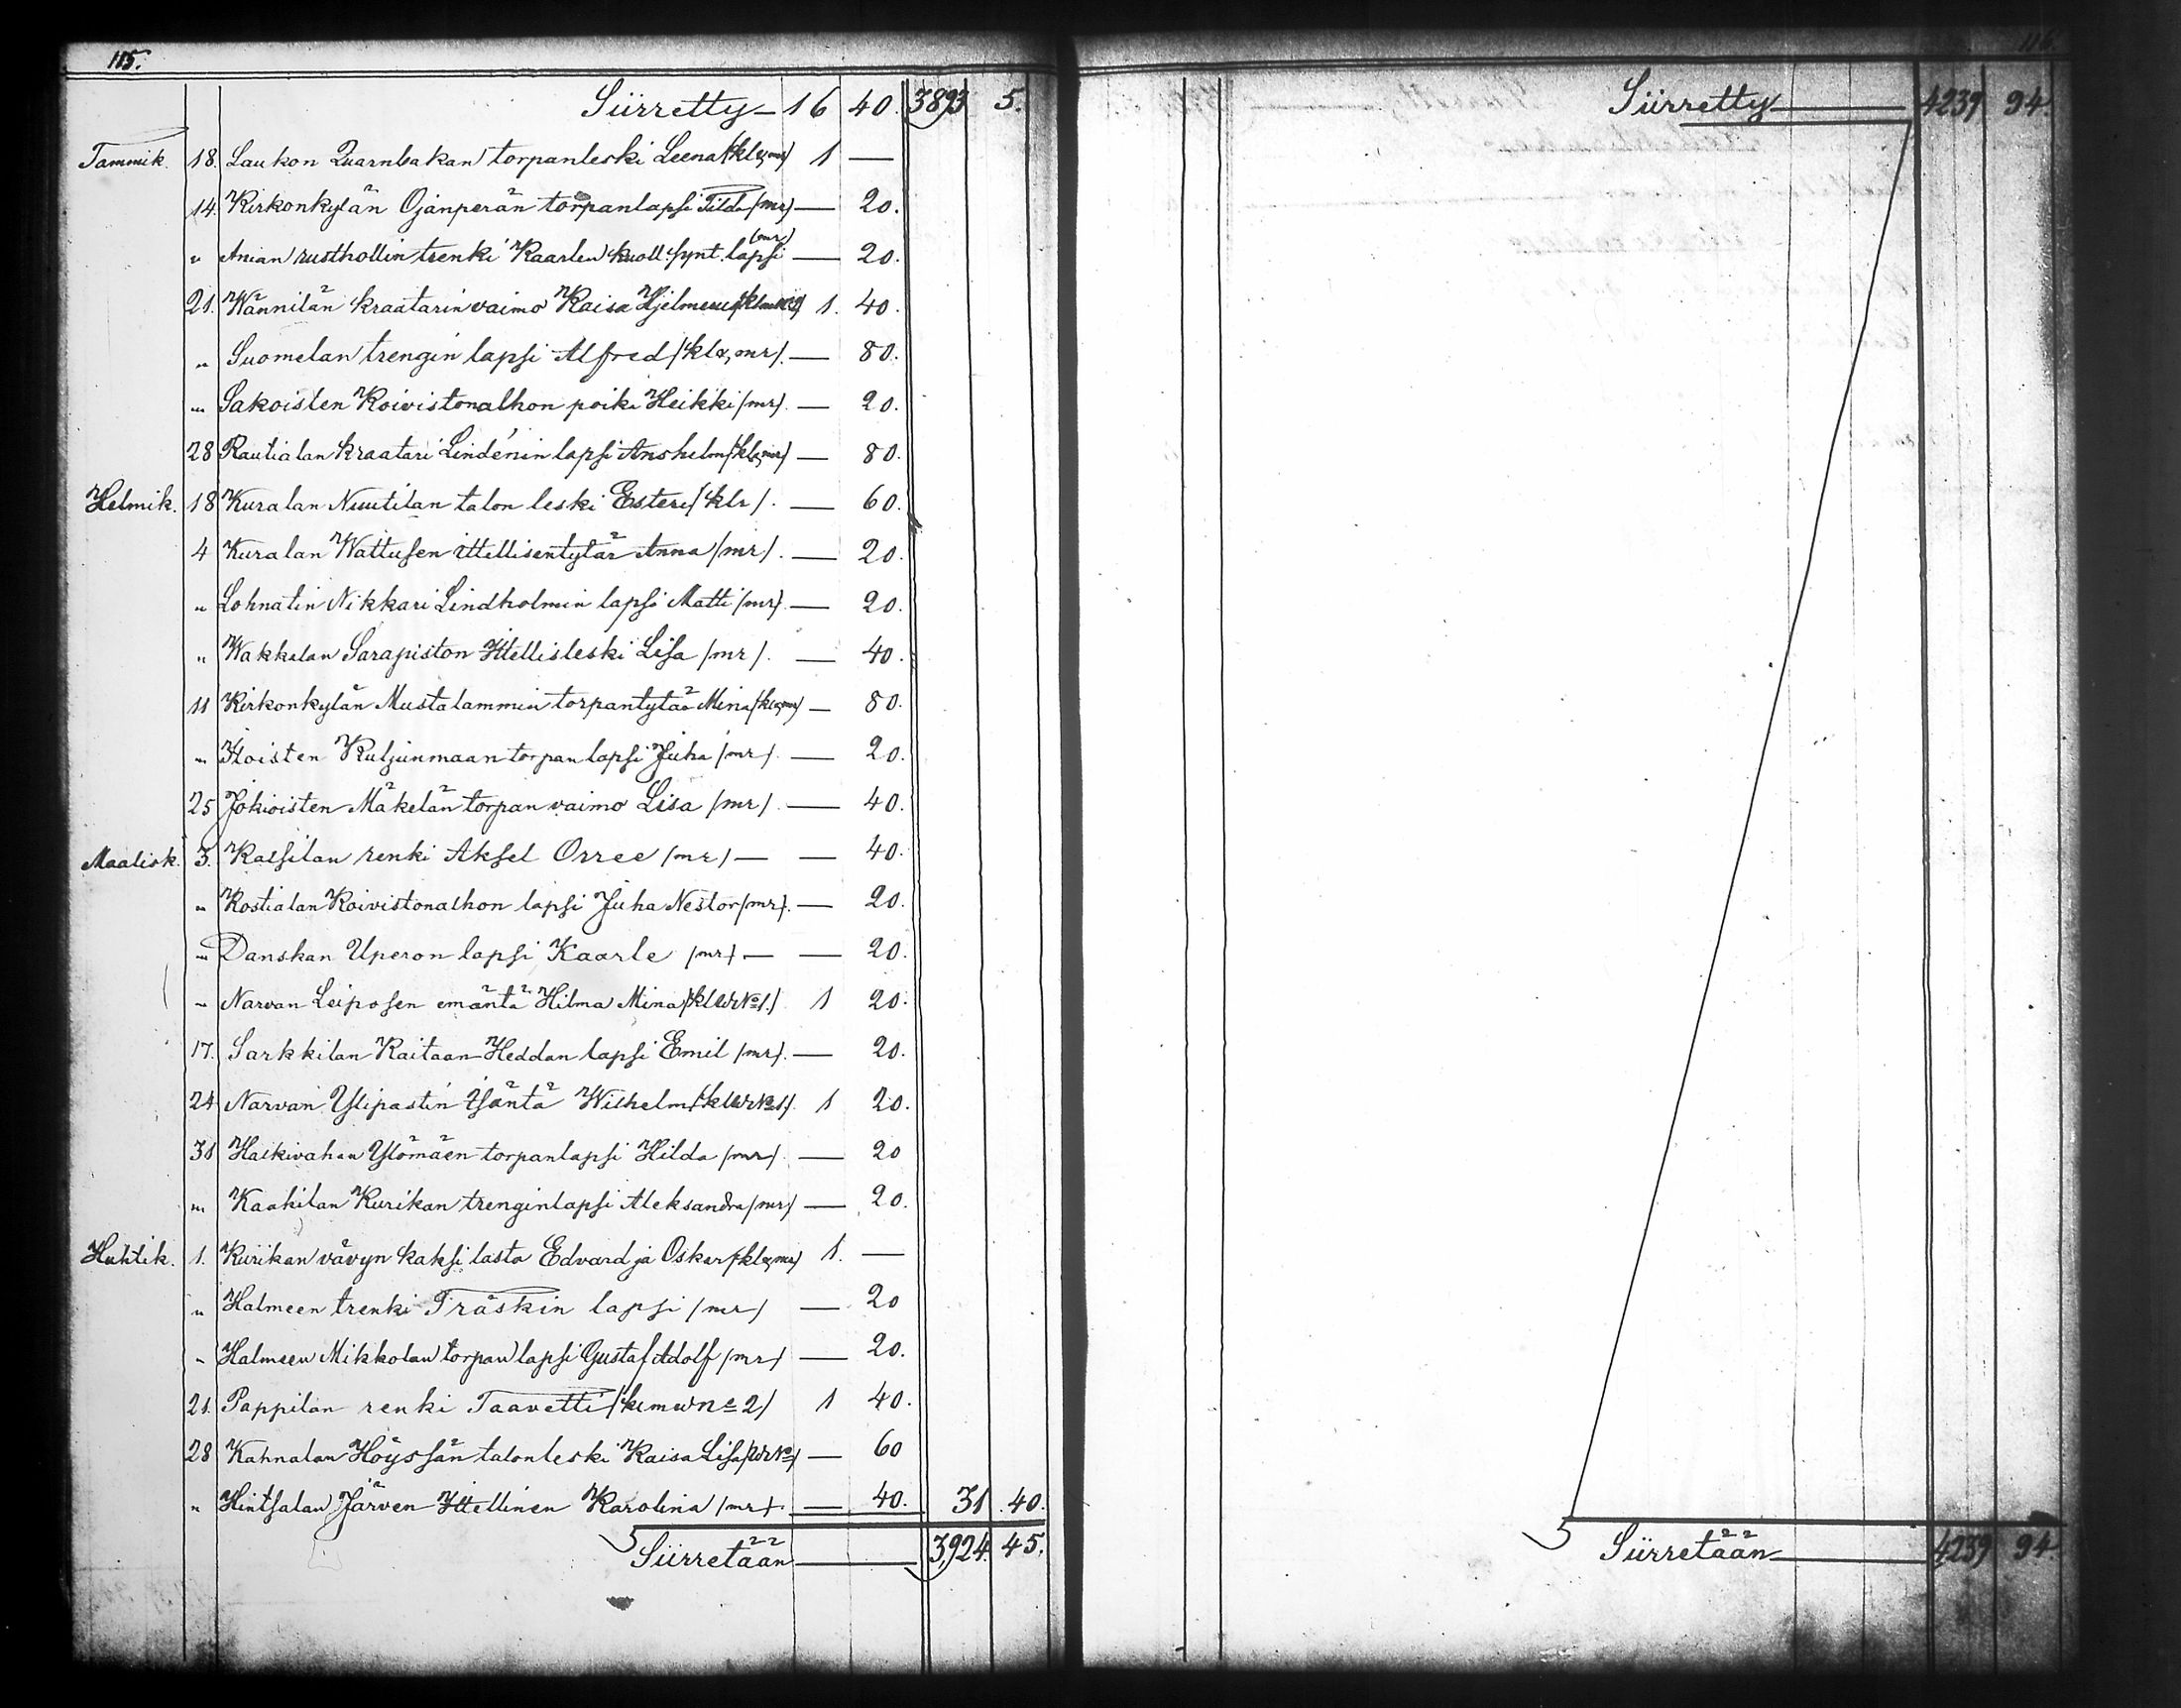 115.
Siirretty — 16 40. 3893 5.
Tammik. 18. Laukon Quarnbakan torpanleski Leena (klr, mr) 1 —
14. Kirkonkylän Ojanperän torpanlapsi Tilda (mr) — 20.
" Anian rusthollin trenki Kaarlen kuoll. synt. lapsi (mr) — 20.
21. Wännilän kraatarin vaimo Kaisa 1. 40.
" Suomelan trengin lapsi Alfred (klr, mr). — 80.
" Sakoisten Koivistonalhon poika Heikki (mr). — 20.
28 Rautialan kraatari Lindénin lapsi Anshelm (klr, mr) — 80.
Helmik. 18 Kuralan Nuutilan talon leski Esteri (klr). — 60.
4 Kuralan Wattusen ittellisentytär Anna (mr). — 20.
" Lohnatin Nikkari Lindholmin lapsi Matti (mr). — 20.
" Wakkalan Sarapiston Ittellisleski Lisa (mr). — 40.
11 Kirkonkylän Mustalammin torpantytär Mina (klr, mr) — 80.
" Itoisten Kuljunmaan torpan lapsi Juha (mr). — 20.
25 Jokioisten Mäkelän torpan vaimo Lisa (mr). — 40.
Maalisk. 3. Kassilan renki Aksel Orree (mr) — — 40.
" Kostialan Koivistonalhon lapsi Juha Nestor (mr). — 20.
" Danskan Uperon lapsi Kaarle (mr). — — 20.
" Narvan Leiposen emäntä Hilma Mina (klwr No 1.) 1 20.
17. Sarkkilan Raitaan Heddan lapsi Emil (mr). — 20.
24 Narvan Ylipastin Isäntä Wilhelm (klwr No 1.) 1 20.
31 Haikivahan Ylömäen torpanlapsi Hilda (mr). — 20
" Kaakilan Kurikan trenginlapsi Aleksandra (mr) — 20.
Huhtik. 1. Kurikan vävyn kaksi lasta Edvard ja Oskar (klr, mr) 1. —
" Halmeen trenki Träskin lapsi (mr) — 20
" Halmeen Mikkolan torpan lapsi Gustaf Adolf (mr) — 20.
21. Pappilan renki Taavetti (klmw No 2) 1 40.
28 Kahnalan Höyssän talonleski Kaisa Lisa — 60
" Hintsalan Järven Ittellinen Karolina (mr). — 40. 31 40.
Siirretään — 3924. 45.
116.
Siirretty — 4239 94.
Siirretään — 4239 94.